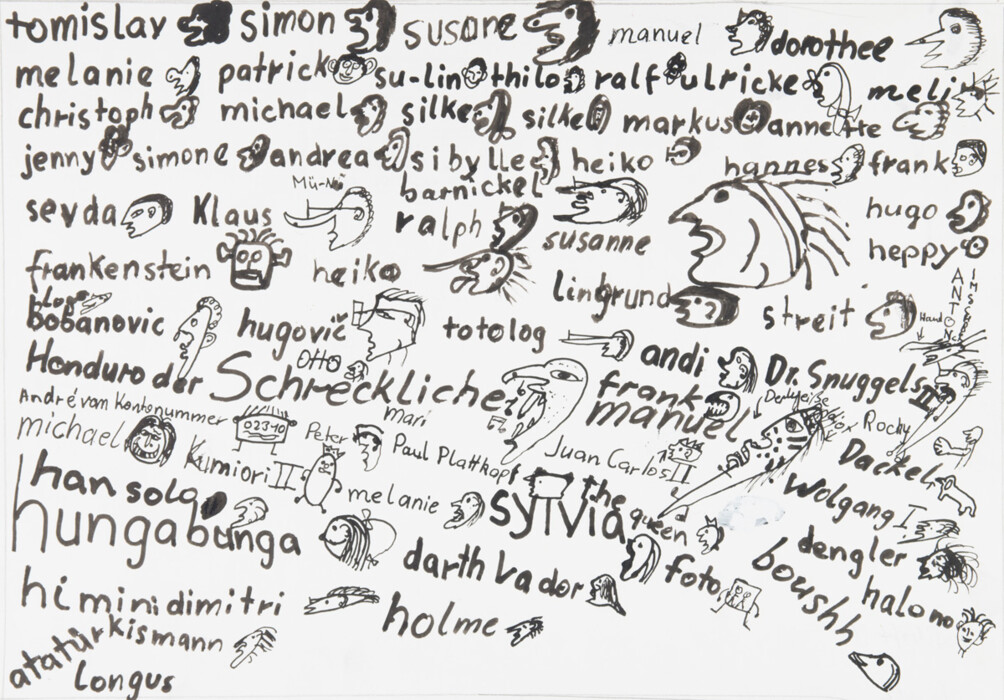 tomislav simon susane manuel dorothee
melanie patrick su-lin thilo ralf ulricke meli
christoph michael silke silke markus annette
jenny simone andrea sibylle heiko hannes frank
barnickel
sevda Klaus ralph susanne hugo
heppy
frankenstein heiko
lingrund streit
bobanovic hugovič totolog
ANTON
Hand
OTTO
andi Dr. Snuggels II
Honduro der Schreckliche frank
manuel
André vom Kontonummer 02340 mari
michael Peter Paul Plattkopf Juan Carlos II Rocky
Kimiori II melanie Dackel
han solo sylvia the queen Wolgang I
hungabunga darth Vador foto dengler
boushh halono
hi mini dimitri holme
atatürkismann
Longus